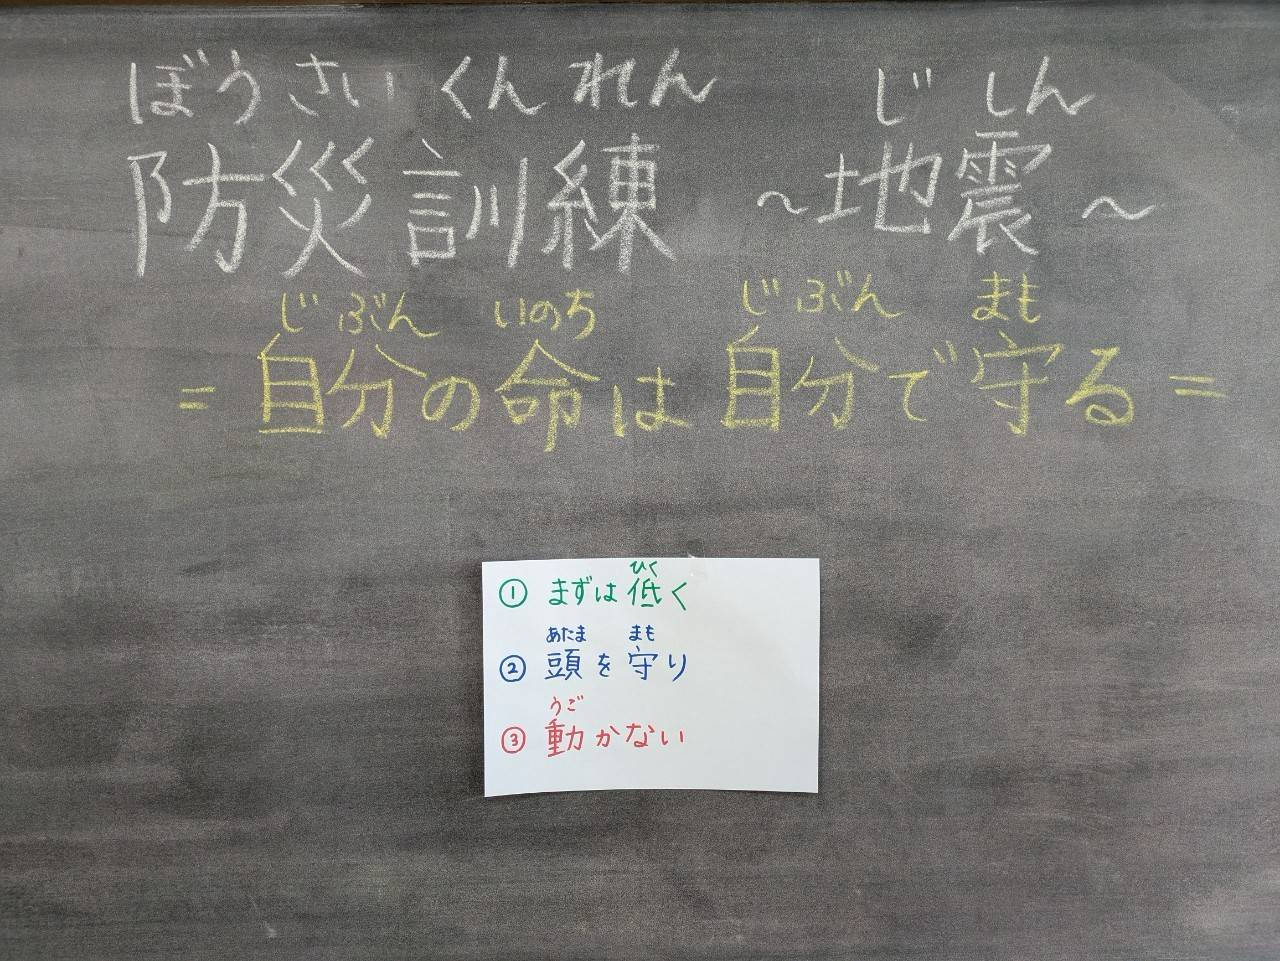 ぼうさいくんれん じしん
防災訓練 ~地震~
じぶん いのち じぶん まも
=自分の命は自分で守る=
ひく
① まずは低く
あたま まも
② 頭を守り
うご
③ 動かない